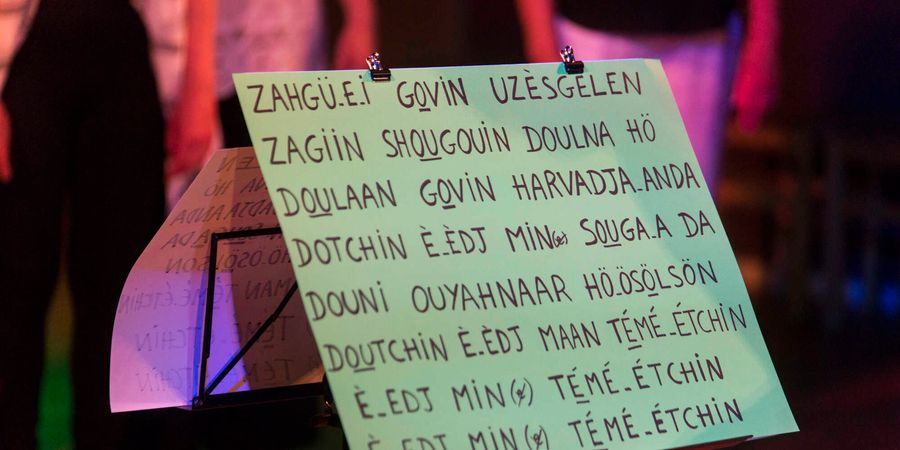 ZAHGÜ.E.I GOVIN UZÈSGELEN
ZAGIIN SHOUGOUIN DOULNA HÖ
DOULAAN GOVIN HARVADJA_ANDA
DOTCHIN È_ÈDJ MIN(e) SOUGA_A DA
DOUNI OUYAHNAAR HÖ.ÖSÖLSÖN
DOUTCHIN È_ÈDJ MAAN TÉMÉ_ÉTCHIN
È_EDJ MIN(e) TÉMÉ_ÉTCHIN
È_EDJ MIN(e) TÉMÉ_ÉTCHIN